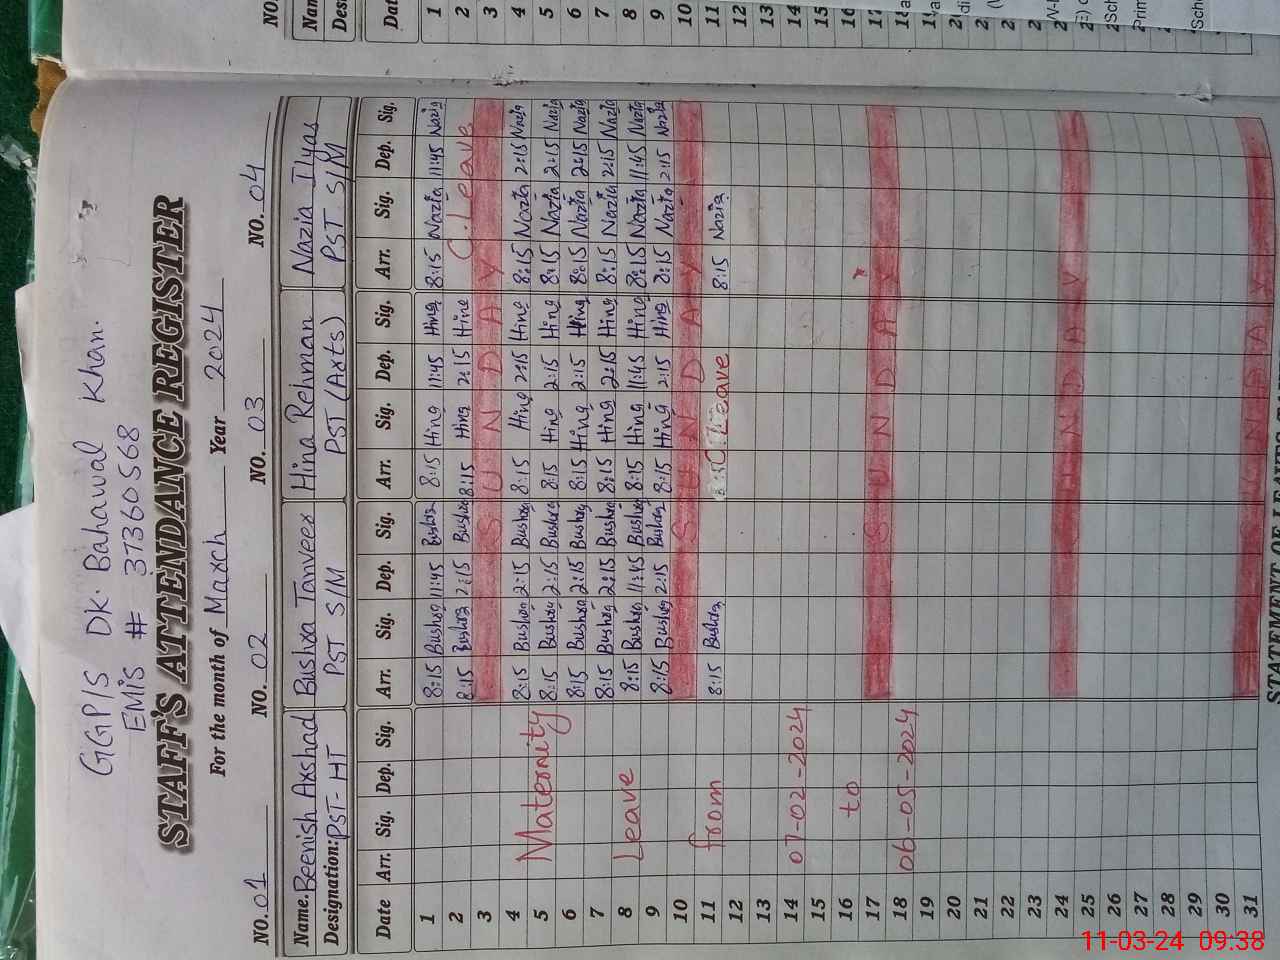 GGP/S DK. Bahawal Khan.
EMIS # 37360568
STAFF'S ATTENDANCE REGISTER
For the month of March Year 2024
NO. 01 NO. 02 NO. 03 NO. 04
Name. Beenish Arshad Bushra Tanveer Hina Rehman Nazia Ilyas
Designation: PST-HT PST S/M PST (Arts) PST S/M
Date Arr. Sig. Dep. Sig. Arr. Sig. Dep. Sig. Arr. Sig. Dep. Sig. Arr. Sig. Dep. Sig.
1 8:15 Bushra 11:45 Bushra 8:15 Hina 11:45 Hina 8:15 Nazia 11:45 Nazia
2 8:15 Bushra 2:15 Bushra 8:15 Hina 2:15 Hina C. Leave
3 SUNDAY
4 Maternity 8:15 Bushra 2:15 Bushra 8:15 Hina 2:15 Hina 8:15 Nazia 2:15 Nazia
5 8:15 Bushra 2:15 Bushra 8:15 Hina 2:15 Hina 8:15 Nazia 2:15 Nazia
6 8:15 Bushra 2:15 Bushra 8:15 Hina 2:15 Hina 8:15 Nazia 2:15 Nazia
7 8:15 Bushra 2:15 Bushra 8:15 Hina 2:15 Hina 8:15 Nazia 2:15 Nazia
8 Leave 8:15 Bushra 11:45 Bushra 8:15 Hina 11:45 Hina 8:15 Nazia 11:45 Nazia
9 8:15 Bushra 2:15 Bushra 8:15 Hina 2:15 Hina 8:15 Nazia 2:15 Nazia
10 SUNDAY
11 from 8:15 Bushra C. Leave 8:15 Nazia
12
13
14 07-02-2024
15
16 to
17 SUNDAY
18 06-05-2024
19
20
21
22
23
24 SUNDAY
25
26
27
28
29
30
31 SUNDAY
STATEMENT OF LEAVE
11-03-24 09:38